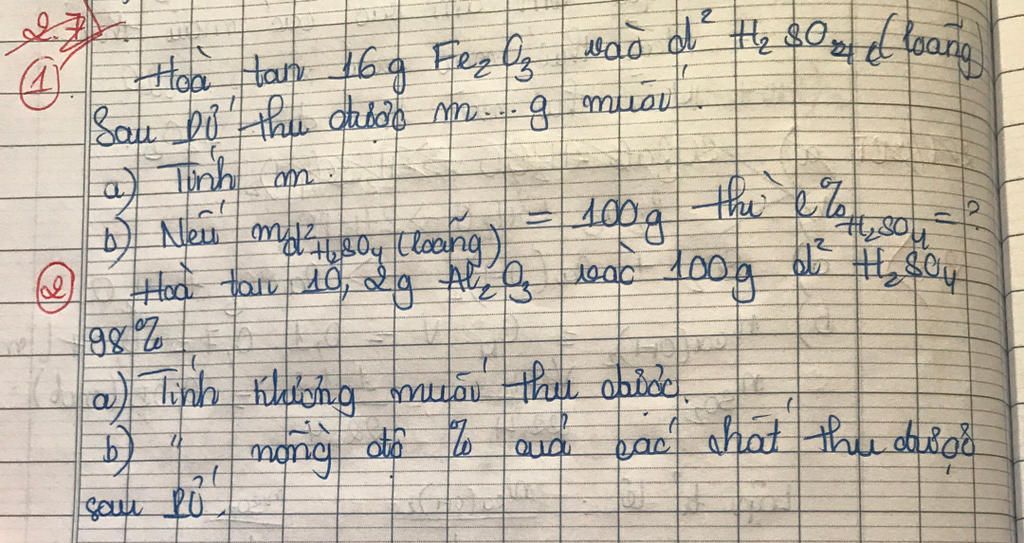 2.7
① Hoà tan 16g Fe₂O₃ vào d² H₂SO₄ (loãng)
Sau PỨ thu được m...g muối.
a) Tính m.
b) Nếu m d² H₂SO₄ (loãng) = 100g thì C% H₂SO₄ = ?
② Hoà tan 10,2g Al₂O₃ vào 100g d² H₂SO₄
98%
a) Tính lượng muối thu được.
b) " nồng độ % cuả các chất thu được
sau PỨ.